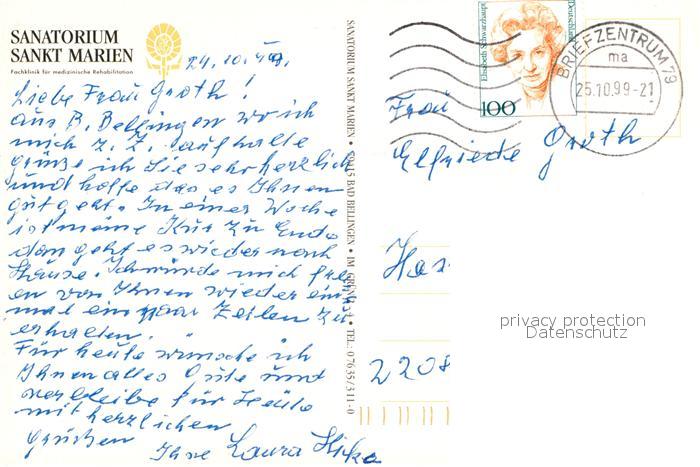 SANATORIUM
SANKT MARIEN
Fachklinik für medizinische Rehabilitation
24.10.99.
Liebe Frau Groth!
aus B. Bellingen wo ich
mich z. Z. aufhalte
grüße ich Sie sehr herzlich
und hoffe das es Ihnen
gut geht. In einer Woche
ist meine Kur zu Ende
dan geht es wieder nach
Hause. Ich würde mich freu
en von Ihnen wieder ein
mal ein paar Zeilen zu
erhalten.
Für heute wünsche ich
Ihnen alles Gute und
verbleibe für Heute
mit herzlichen
Grüßen
Ihre Laura
SANATORIUM SANKT MARIEN • 79415 BAD BELLINGEN • IM GRÜN • TEL. 07635/311-0
Elisabeth Schwarzhaupt
Deutschland
100
BRIEFZENTRUM 79
ma
25.10.99-21
Frau
Elfriede Groth
Has
2208
privacy protection
Datenschutz